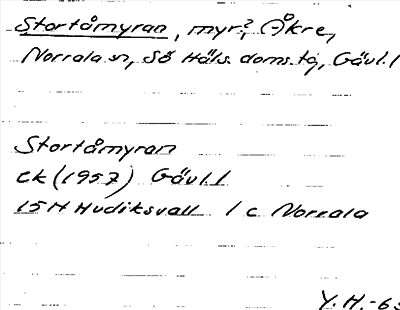 Stortåmyran, myr?, Åkre,
Norrala sn, Sö Häls. doms.tg, Gävl. l
Stortåmyran
Ek (1957) Gävl. l
15H Hudiksvall 1 c Norrala
Y. H. -63